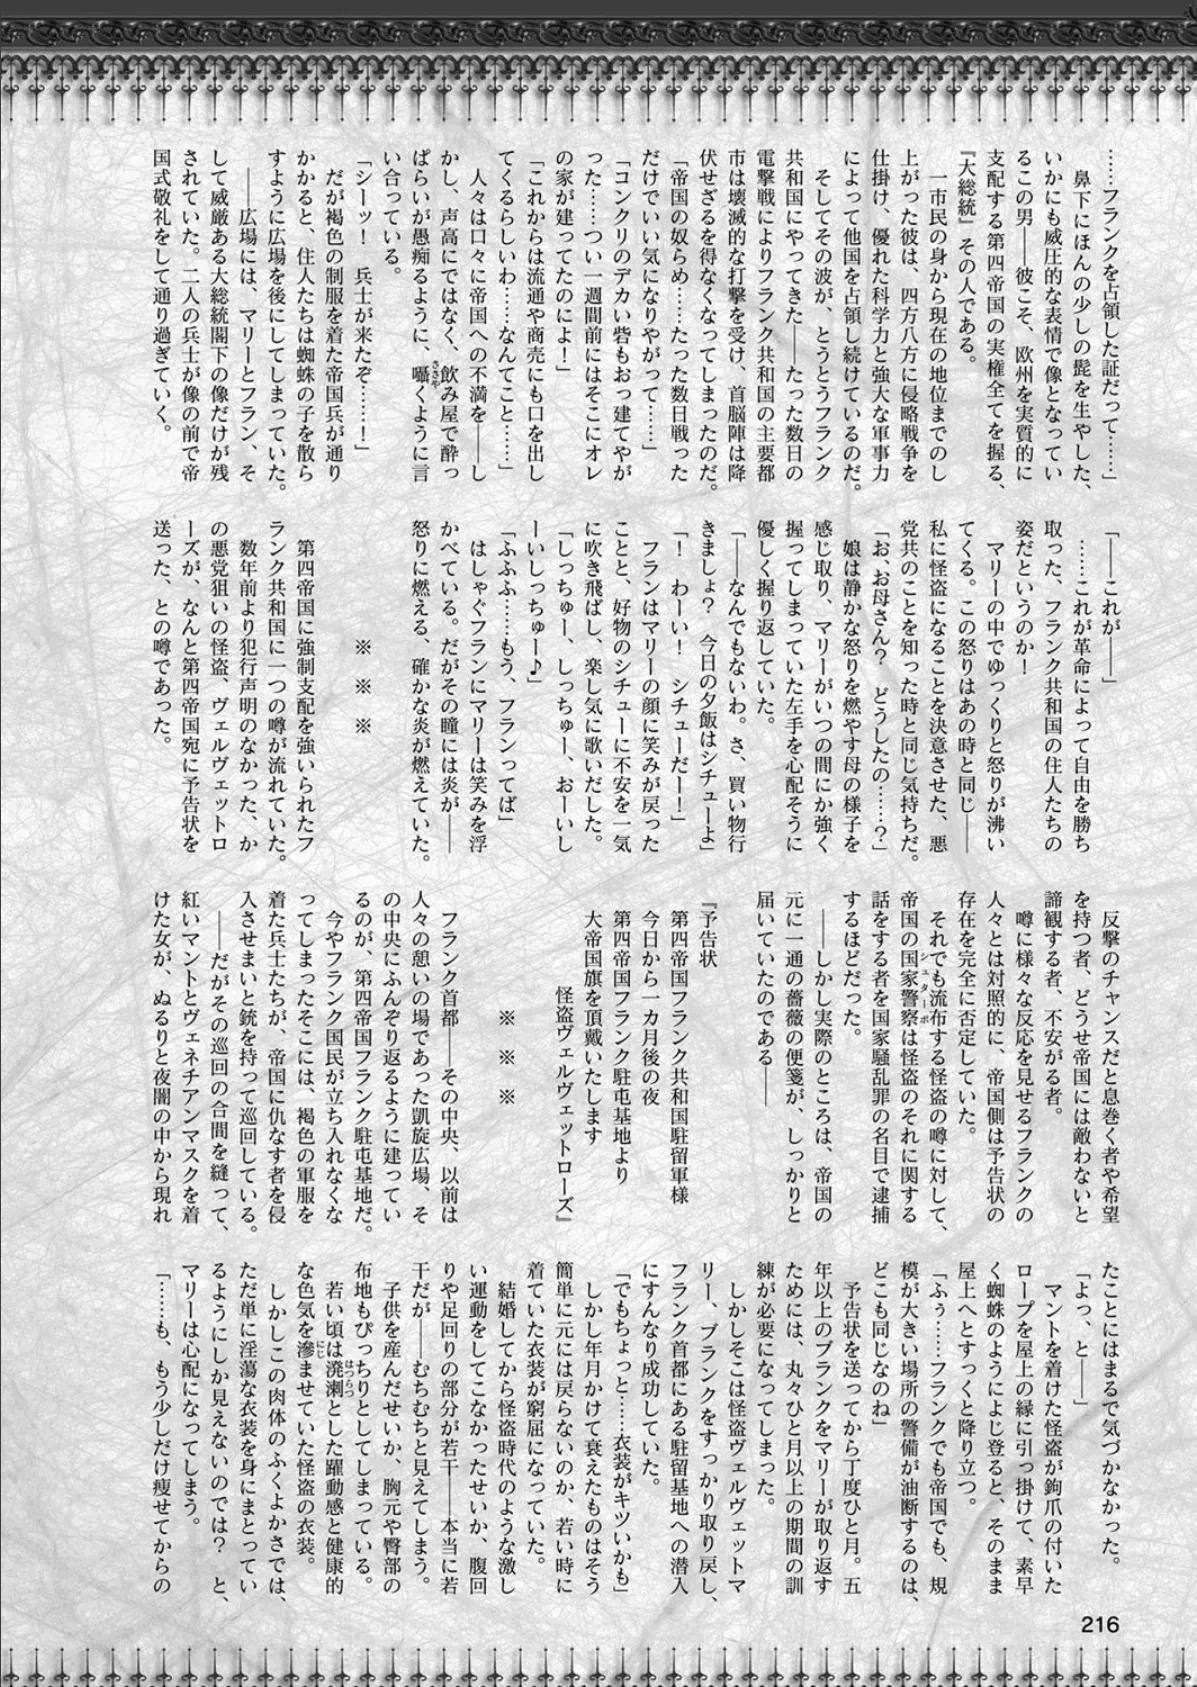 ……フランクを占領した証だって……」
　鼻下にほんの少しの髭を生やした、
いかにも威圧的な表情で像となってい
るこの男――彼こそ、欧州を実質的に
支配する第四帝国の実権全てを握る、
『大総統』その人である。
　一市民の身から現在の地位までのし
上がった彼は、四方八方に侵略戦争を
仕掛け、優れた科学力と強大な軍事力
によって他国を占領し続けているのだ。
　そしてその波が、とうとうフランク
共和国にやってきた――たった数日の
電撃戦によりフランク共和国の主要都
市は壊滅的な打撃を受け、首脳陣は降
伏せざるを得なくなってしまったのだ。
「帝国の奴らめ……たった数日戦った
だけでいい気になりやがって……」
「コンクリのデカい砦もおっ建てやが
った……つい一週間前にはそこにオレ
の家が建ってたのによ！」
「これからは流通や商売にも口を出し
てくるらしいわ……なんてこと……」
　人々は口々に帝国への不満を――し
かし、声高にではなく、飲み屋で酔っ
ぱらいが愚痴るように、囁くように言
い合っている。
「シーッ！　兵士が来たぞ……！」
　だが褐色の制服を着た帝国兵が通り
かかると、住人たちは蜘蛛の子を散ら
すように広場を後にしてしまっていた。
　――広場には、マリーとフラン、そ
して威厳ある大総統閣下の像だけが残
されていた。二人の兵士が像の前で帝
国式敬礼をして通り過ぎていく。
「――これが――」
　……これが革命によって自由を勝ち
取った、フランク共和国の住人たちの
姿だというのか！
　マリーの中でゆっくりと怒りが沸い
てくる。この怒りはあの時と同じ――
私に怪盗になることを決意させた、悪
党共のことを知った時と同じ気持ちだ。
「お、お母さん？　どうしたの……？」
　娘は静かな怒りを燃やす母の様子を
感じ取り、マリーがいつの間にか強く
握ってしまっていた左手を心配そうに
優しく握り返していた。
「――なんでもないわ。さ、買い物行
きましょ？　今日の夕飯はシチューよ」
「！　わーい！　シチューだー！」
　フランはマリーの顔に笑みが戻った
ことと、好物のシチューに不安を一気
に吹き飛ばし、楽し気に歌いだした。
「しっちゅー、しっちゅー、おーいし
ーいしっちゅー♪」
「ふふふ……もう、フランってば」
　はしゃぐフランにマリーは笑みを浮
かべている。だがその瞳には炎が――
怒りに燃える、確かな炎が燃えていた。
※　※　※
　第四帝国に強制支配を強いられたフ
ランク共和国に一つの噂が流れていた。
　数年前より犯行声明のなかった、か
の悪党狙いの怪盗、ヴェルヴェットロ
ーズが、なんと第四帝国宛に予告状を
送った、との噂であった。
　反撃のチャンスだと息巻く者や希望
を持つ者、どうせ帝国には敵わないと
諦観する者、不安がる者。
　噂に様々な反応を見せるフランクの
人々とは対照的に、帝国側は予告状の
存在を完全に否定していた。
　それでも流布する怪盗の噂に対して、
帝国の国家警察は怪盗のそれに関する
話をする者を国家騒乱罪の名目で逮捕
するほどだった。
　――しかし実際のところは、帝国の
元に一通の薔薇の便箋が、しっかりと
届いていたのである――
『予告状
第四帝国フランク共和国駐留軍様
今日から一カ月後の夜
第四帝国フランク駐屯基地より
大帝国旗を頂戴いたします
怪盗ヴェルヴェットローズ』
※　※　※
　フランク首都――その中央、以前は
人々の憩いの場であった凱旋広場、そ
の中央にふんぞり返るように建ってい
るのが、第四帝国フランク駐屯基地だ。
　今やフランク国民が立ち入れなくな
ってしまったそこには、褐色の軍服を
着た兵士たちが、帝国に仇なす者を侵
入させまいと銃を持って巡回している。
　――だがその巡回の合間を縫って、
紅いマントとヴェネチアンマスクを着
けた女が、ぬるりと夜闇の中から現れ
たことにはまるで気づかなかった。
「よっ、と――」
　マントを着けた怪盗が鉤爪の付いた
ロープを屋上の縁に引っ掛けて、素早
く蜘蛛のようによじ登ると、そのまま
屋上へとすっくと降り立つ。
「ふぅ……フランクでも帝国でも、規
模が大きい場所の警備が油断するのは、
どこも同じなのね」
　予告状を送ってから丁度ひと月。五
年以上のブランクをマリーが取り返す
ためには、丸々ひと月以上の期間の訓
練が必要になってしまった。
　しかしそこは怪盗ヴェルヴェットマ
リー、ブランクをすっかり取り戻し、
フランク首都にある駐留基地への潜入
にすんなり成功していた。
「でもちょっと……衣装がキツいかも」
　しかし年月かけて衰えたものはそう
簡単に元には戻らないのか、若い時に
着ていた衣装が窮屈になっていた。
　結婚してから怪盗時代のような激し
い運動をしてこなかったせいか、腹回
りや足回りの部分が若干――本当に若
干だが――むちむちと見えてしまう。
　子供を産んだせいか、胸元や臀部の
布地もぴっちりとしてしまっている。
　若い頃は溌溂とした躍動感と健康的
な色気を滲ませていた怪盗の衣装。
　しかしこの肉体のふくよかさでは、
ただ単に淫蕩な衣装を身にまとってい
るようにしか見えないのでは？　と、
マリーは心配になってしまう。
「……も、もう少しだけ痩せてからの
216